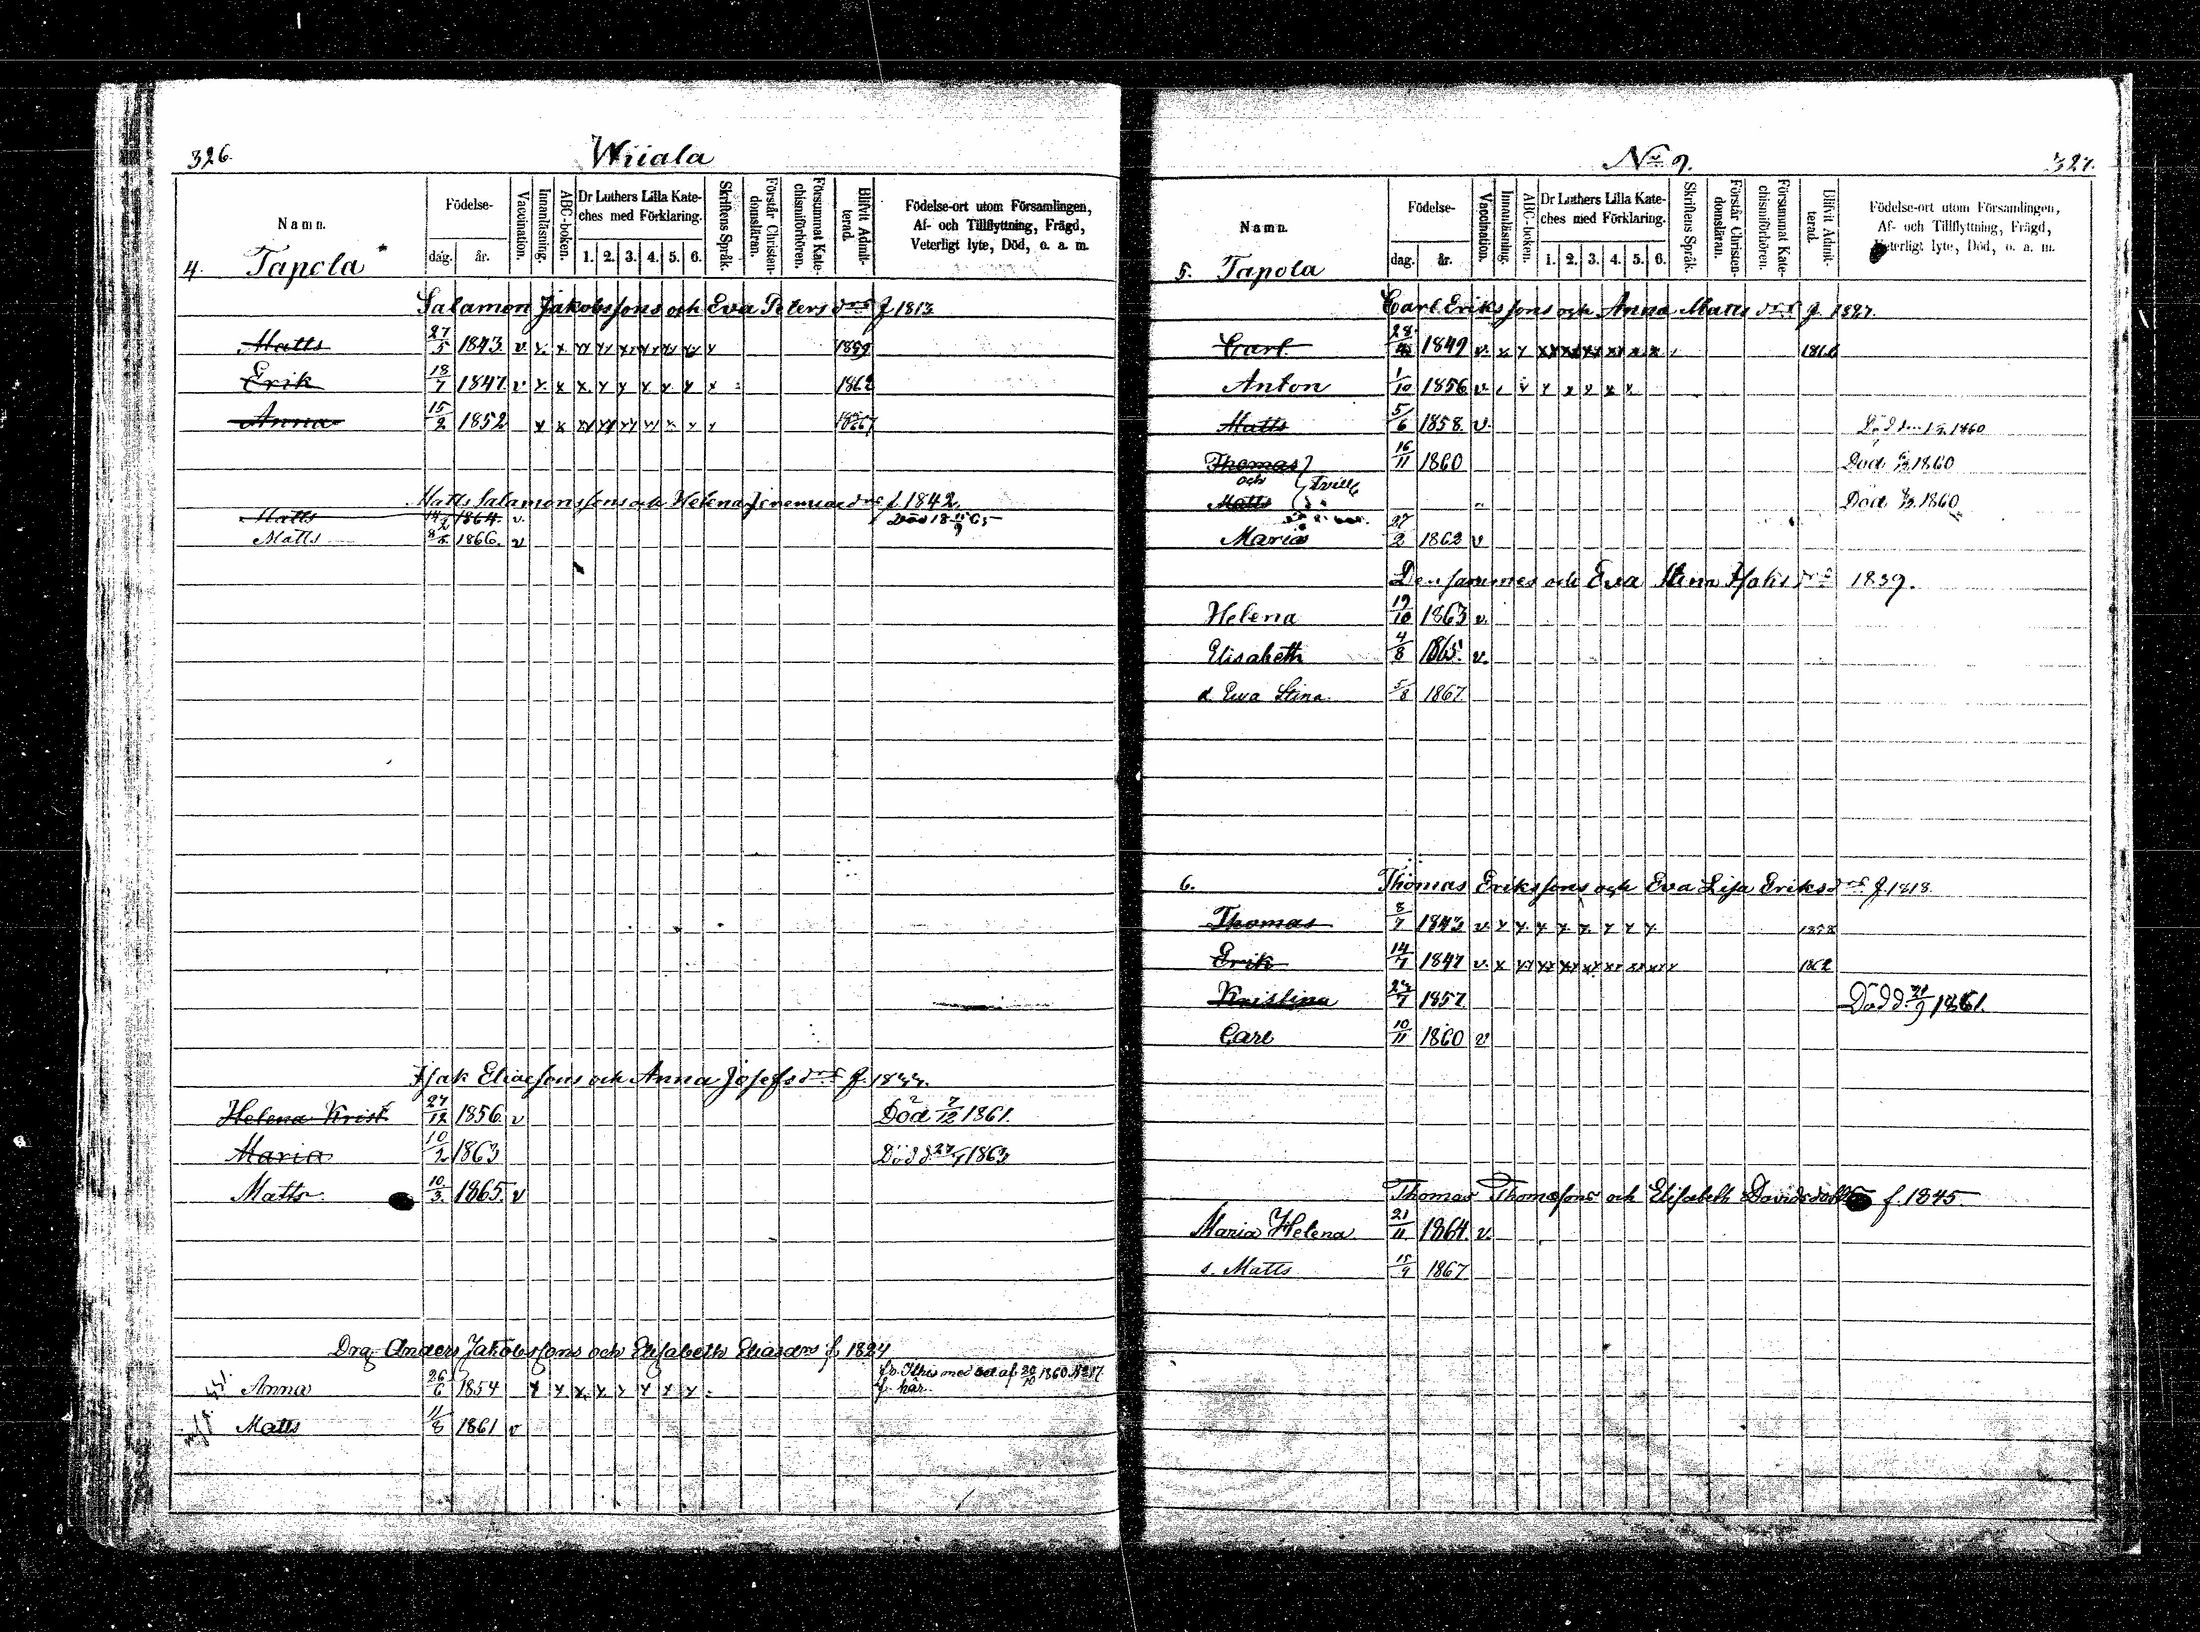 326.
Wiiala
Namn.
Födelse-
dag.
år.
Vaccination.
Innanläsning.
ABC-boken.
Dr Luthers Lilla Kate-
ches med Förklaring.
1. 2. 3. 4. 5. 6.
Skriftens Språk.
Förstår Christen-
domsläran.
Försummat Kate-
chismiförhören.
Blifvit Admit-
terad.
Födelse-ort utom Församlingen,
Af- och Tillflyttning, Frägd,
Veterligt lyte, Död, o. a. m.
4. Tapola
Salamon Jakobssons och Eva Petersdr f 1813
Matts 27/5 1843 v x x xx xx xx xx xx xx x 1859
Erik 18/7 1847 v x x x x x x x x x 1862
Anna 15/2 1852 x x xx xx xx xx x x x 1867
Matts Salamonssons och Helena Jeremiaedr f. 1842
Matts 1864. v. Död 18 65
Matts 1866. v
Isak Eliaesons och Anna Josefsdr f. 1833.
Helena Krist 27/12 1856 v Död 7/12 1861.
Maria 10/2 1863 Död d. 1863
Matts 10/3 1865. v
Drg Anders Jakobssons och Elisabeth Eliasdr f 1824
fr. Ilhis med bet. af 20/10 1860 No 17.
Anna 26/6 1854 x x x x x x x x f. här.
Matts 11/8 1861 v
No 9.
327.
Namn.
Födelse-
dag.
år.
Vaccination.
Innanläsning.
ABC-boken.
Dr Luthers Lilla Kate-
ches med Förklaring.
1. 2. 3. 4. 5. 6.
Skriftens Språk.
Förstår Christen-
domsläran.
Försummat Kate-
chismiförhören.
Blifvit Admit-
terad.
Födelse-ort utom Församlingen,
Af- och Tillflyttning, Frägd,
Veterligt lyte, Död, o. a. m.
5. Tapola
Carl Erikssons och Anna Mattsdr f. 1827.
Carl 1849 v. x x xx xx xx xx x x
Anton 1/10 1856 v.
Matts 5/6 1858. v. Död den 1860
Thomas 16/11 1860 Död 1860
och tvill.
Matts Död 1860
Maria 27/2 1862 v
Densammes och Eva Stina Isaksdr 1839.
Helena 19/10 1863 v.
Elisabeth 4/8 1865. v.
d. Ewa Stina 5/8 1867
6. Thomas Erikssons och Eva Lisa Eriksdr f. 1818.
Thomas 8/7 1843 v. x x x x x x x x 1858
Erik 14/1 1847 v. x xx xx xx xx xx xx xx 1862
Kristina 23/7 1857 Död d. 21/9 1861.
Carl 10/11 1860 v
Thomas Thomassons och Elisabeth Davidsdotter f. 1845
Maria Helena 21/11 1864. v.
s. Matts 15/9 1867